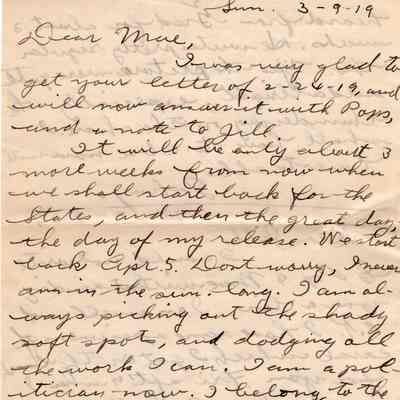 Sun. 3-9-19
Dear Mae,
I was very glad to
get your letter of 2-24-19, and
will now answer it with Pops,
and a note to Jill.
It will be only about 3
more weeks from now when
we shall start back for the
States, and then the great day,
the day of my release. We start
back Apr. 5. Dont worry, I never
am in the sun long. I am al-
ways picking out the shady
soft spots, and dodging all
the work I can. I am a pol-
itician now. I belong to the